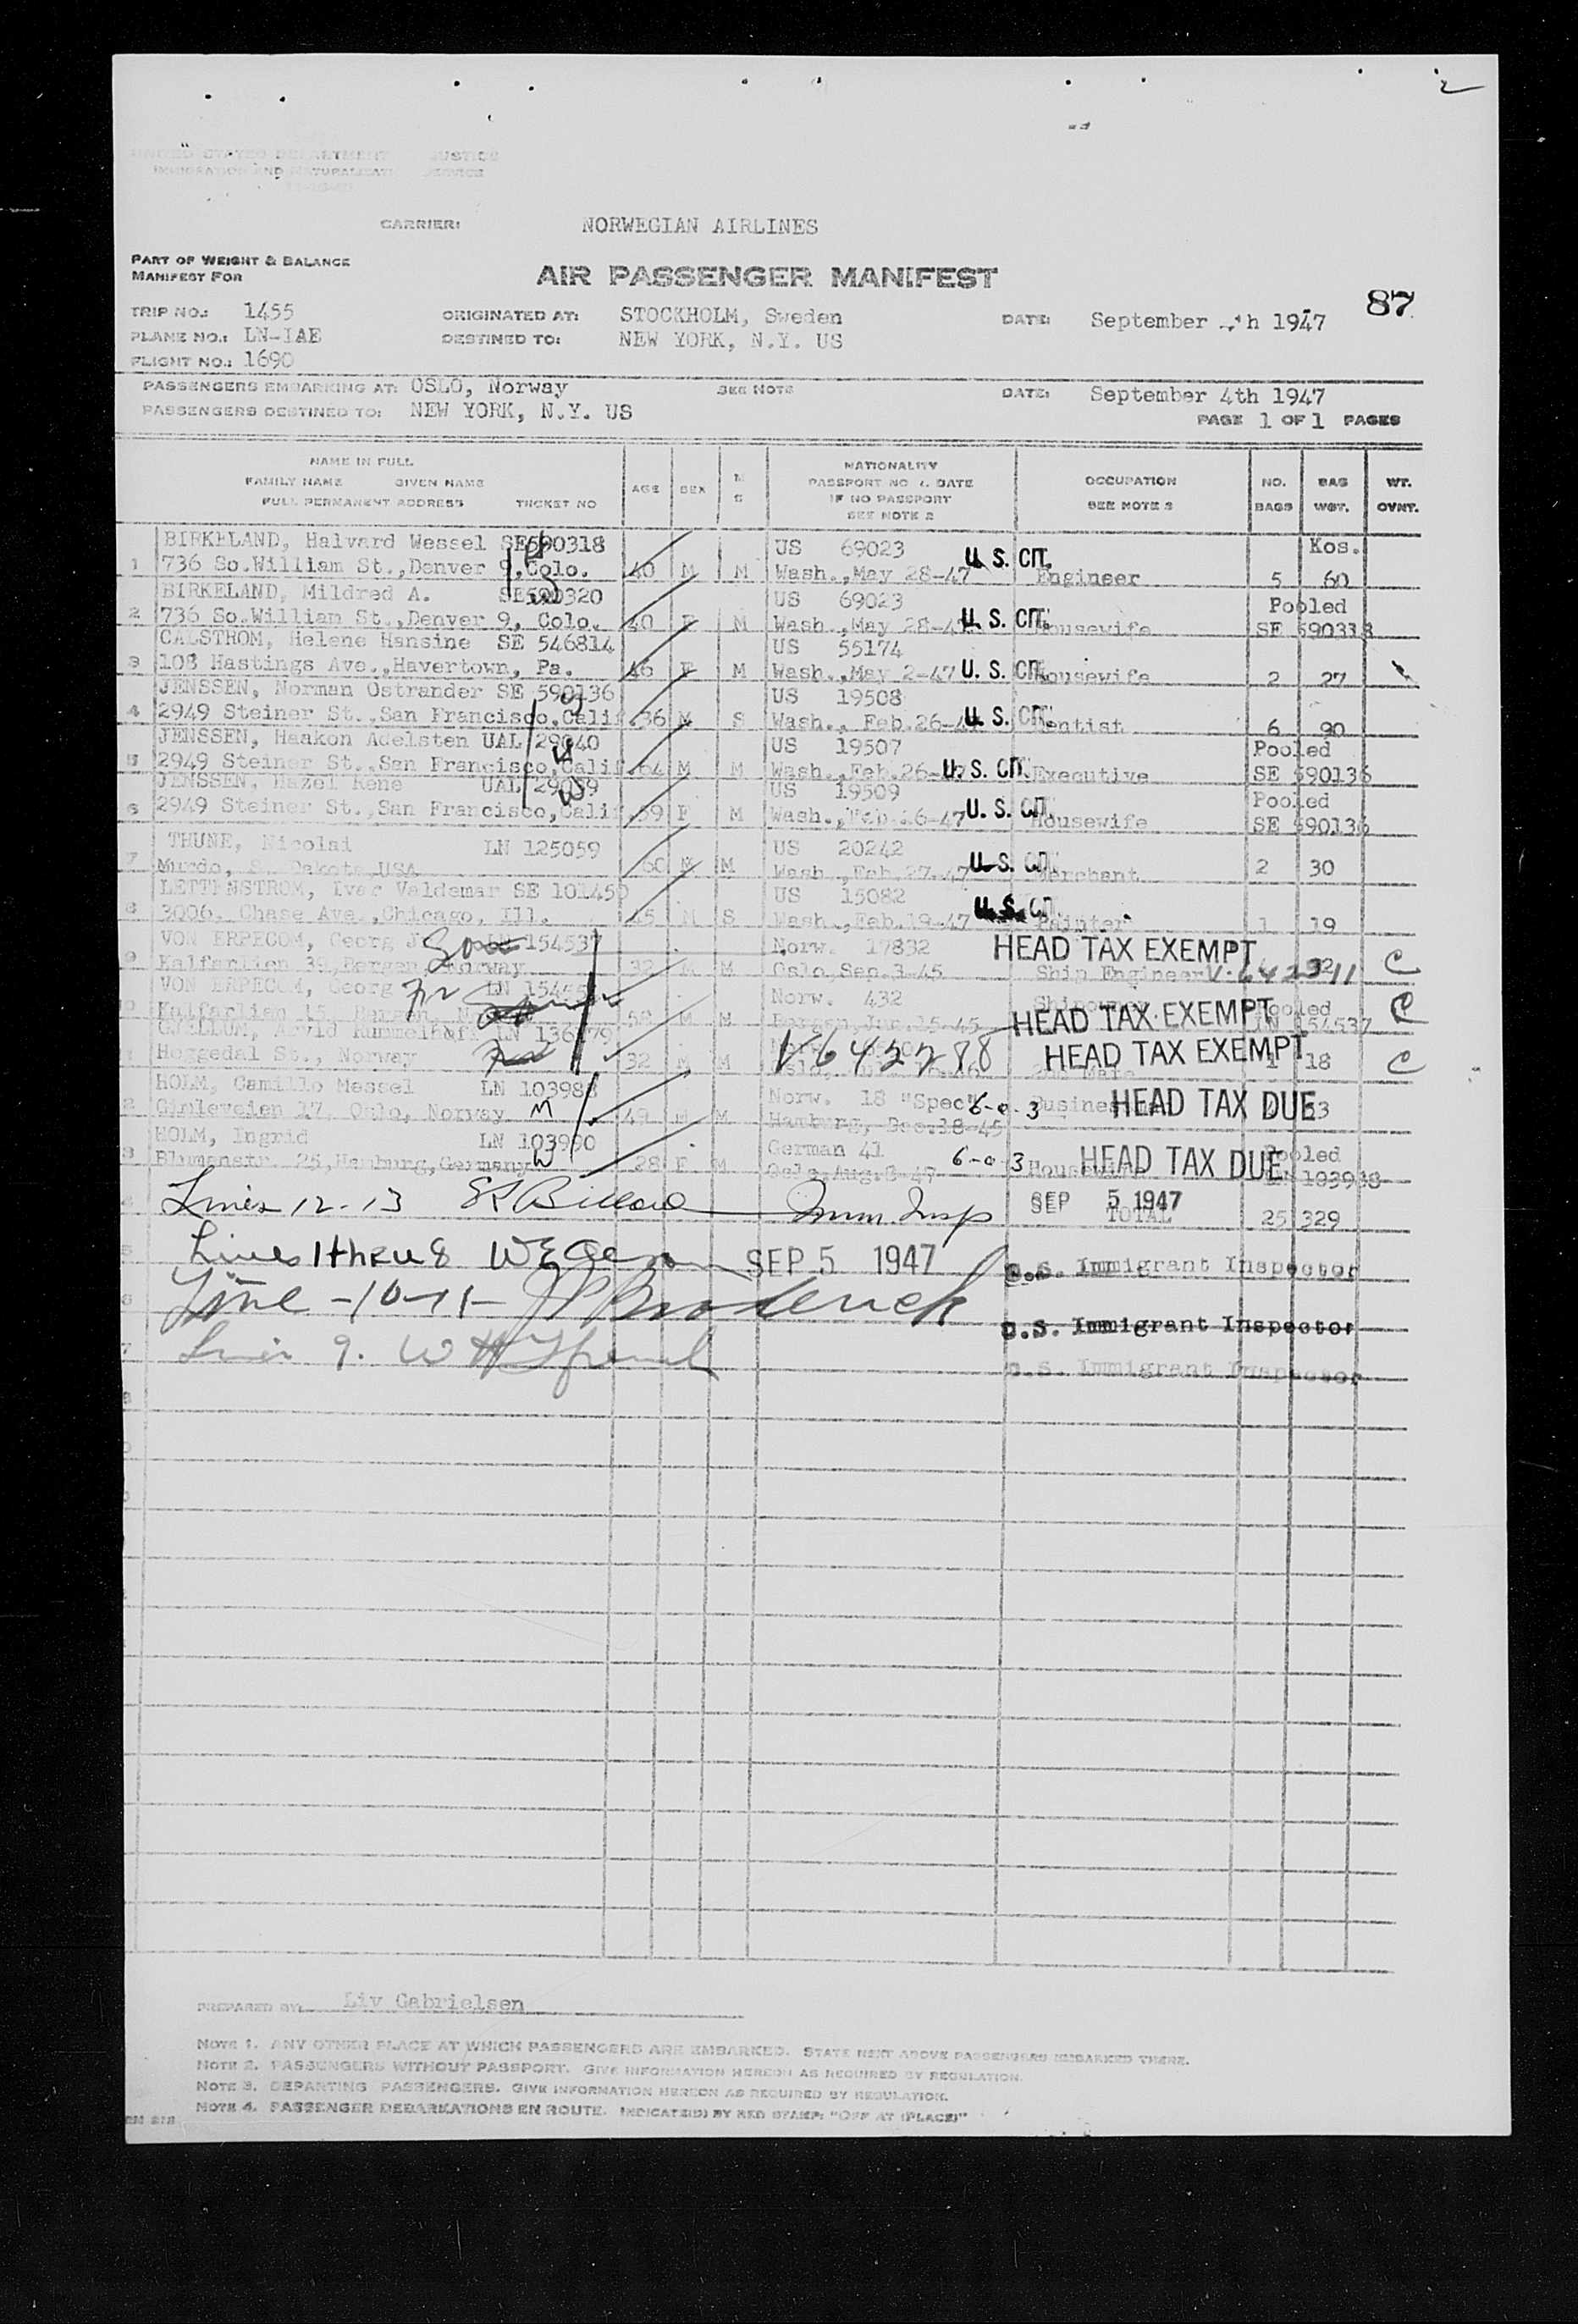 2
UNITED STATES DEPARTMENT JUSTICE
IMMIGRATION AND NATURALIZATION SERVICE
CARRIER: NORWEGIAN AIRLINES
PART OF WEIGHT & BALANCE
MANIFEST FOR
AIR PASSENGER MANIFEST
87
TRIP NO.: 1455 ORIGINATED AT: STOCKHOLM, Sweden DATE: September h 1947
PLANE NO.: LN-IAE DESTINED TO: NEW YORK, N.Y. US
FLIGHT NO.: 1690
PASSENGERS EMBARKING AT: OSLO, Norway SEE NOTE DATE: September 4th 1947
PASSENGERS DESTINED TO: NEW YORK, N.Y. US
PAGE 1 OF 1 PAGES
NAME IN FULL
FAMILY NAME GIVEN NAME
FULL PERMANENT ADDRESS TICKET NO
AGE SEX M S
NATIONALITY
PASSPORT NO & DATE
IF NO PASSPORT
SEE NOTE 2
OCCUPATION
SEE NOTE 3
NO. BAGS
BAG WGT.
WT. OVNT.
BIRKELAND, Halvard Wessel SE590318 US 69023 U. S. CIT. Kos.
1 736 So.William St.,Denver 9,Colo. 40 M M Wash.,May 28-47 Engineer 5 60
BIRKELAND, Mildred A. SE590320 US 69023 Pooled
2 736 So.William St.,Denver 9, Colo. 40 F M Wash.,May 28-47 U. S. CIT. Housewife SE 590318
CALSTROM, Helene Hansine SE 546814 US 55174
3 108 Hastings Ave.,Havertown, Pa. 46 F M Wash.,May 2-47 U. S. CIT. Housewife 2 27
JENSSEN, Norman Ostrander SE 590136 US 19508
4 2949 Steiner St.,San Francisco,Calif. 36 M S Wash., Feb.26-47 U. S. CIT. Dentist 6 90
JENSSEN, Haakon Adelsten UAL 29040 US 19507 Pooled
5 2949 Steiner St.,San Francisco,Calif. 64 M M Wash.,Feb.26-47 U. S. CIT. Executive SE 590136
JENSSEN, Hazel Rene UAL 29039 US 19509 Pooled
6 2949 Steiner St.,San Francisco,Calif. 59 F M Wash.,Feb. 6-47 U. S. CIT. Housewife SE 590136
THUNE, Nicolai LN 125059 US 20242
7 Murdo, S. Dakota,USA 60 M M Wash.,Feb.27-47 U. S. CIT. Merchant 2 30
LETTENSTROM, Ivar Valdemar SE 101450 US 15082
8 3006. Chase Ave.,Chicago, Ill. 45 M S Wash.,Feb.19-47 U. S. CIT. Painter 1 19
VON ERPECOM, Georg J. LN 154537 Norw. 17832 HEAD TAX EXEMPT
9 Kalfarlien 39,Bergen, Norway 32 M M Oslo,Sep.3-45 Ship Engineer C
VON ERPECOM, Georg LN Norw. 432 Shipowner Pooled
10 Kalfarlien 15, Bergen, 58 M M Bergen,Jan.15-45 HEAD TAX EXEMPT LN 154537 C
Arvid LN
Heggedal St., Norway 32 M M V642288 HEAD TAX EXEMPT 1 18 C
HOLM, Camillo Messel LN 103988 Norw. 18 "Spec" 6-a 3
Gimleveien 17, Oslo, Norway M 49 M M Hamburg, Dec.18-45 Business HEAD TAX DUE
HOLM, Ingrid LN 103990 German 41 Pooled
Blumenstr. 25,Hamburg,Germany W 28 F M Oslo,Aug.8-47 6-a 3 Housewife HEAD TAX DUE LN 103988
Lines 12-13 Imm. Insp SEP 5 1947
TOTAL 25 329
Lines 1 thru 8 SEP 5 1947 U.S. Immigrant Inspector
Line -10-11- Broderick
U.S. Immigrant Inspector
Line 9.
U.S. Immigrant Inspector
PREPARED BY: Liv Gabrielsen
NOTE 1. ANY OTHER PLACE AT WHICH PASSENGERS ARE EMBARKED. STATE NEXT ABOVE PASSENGERS EMBARKED THERE.
NOTE 2. PASSENGERS WITHOUT PASSPORT. GIVE INFORMATION HEREON AS REQUIRED BY REGULATION.
NOTE 3. DEPARTING PASSENGERS. GIVE INFORMATION HEREON AS REQUIRED BY REGULATION.
NOTE 4. PASSENGER DEBARKATIONS EN ROUTE. INDICATE(S) BY RED STAMP: "OFF AT (PLACE)"